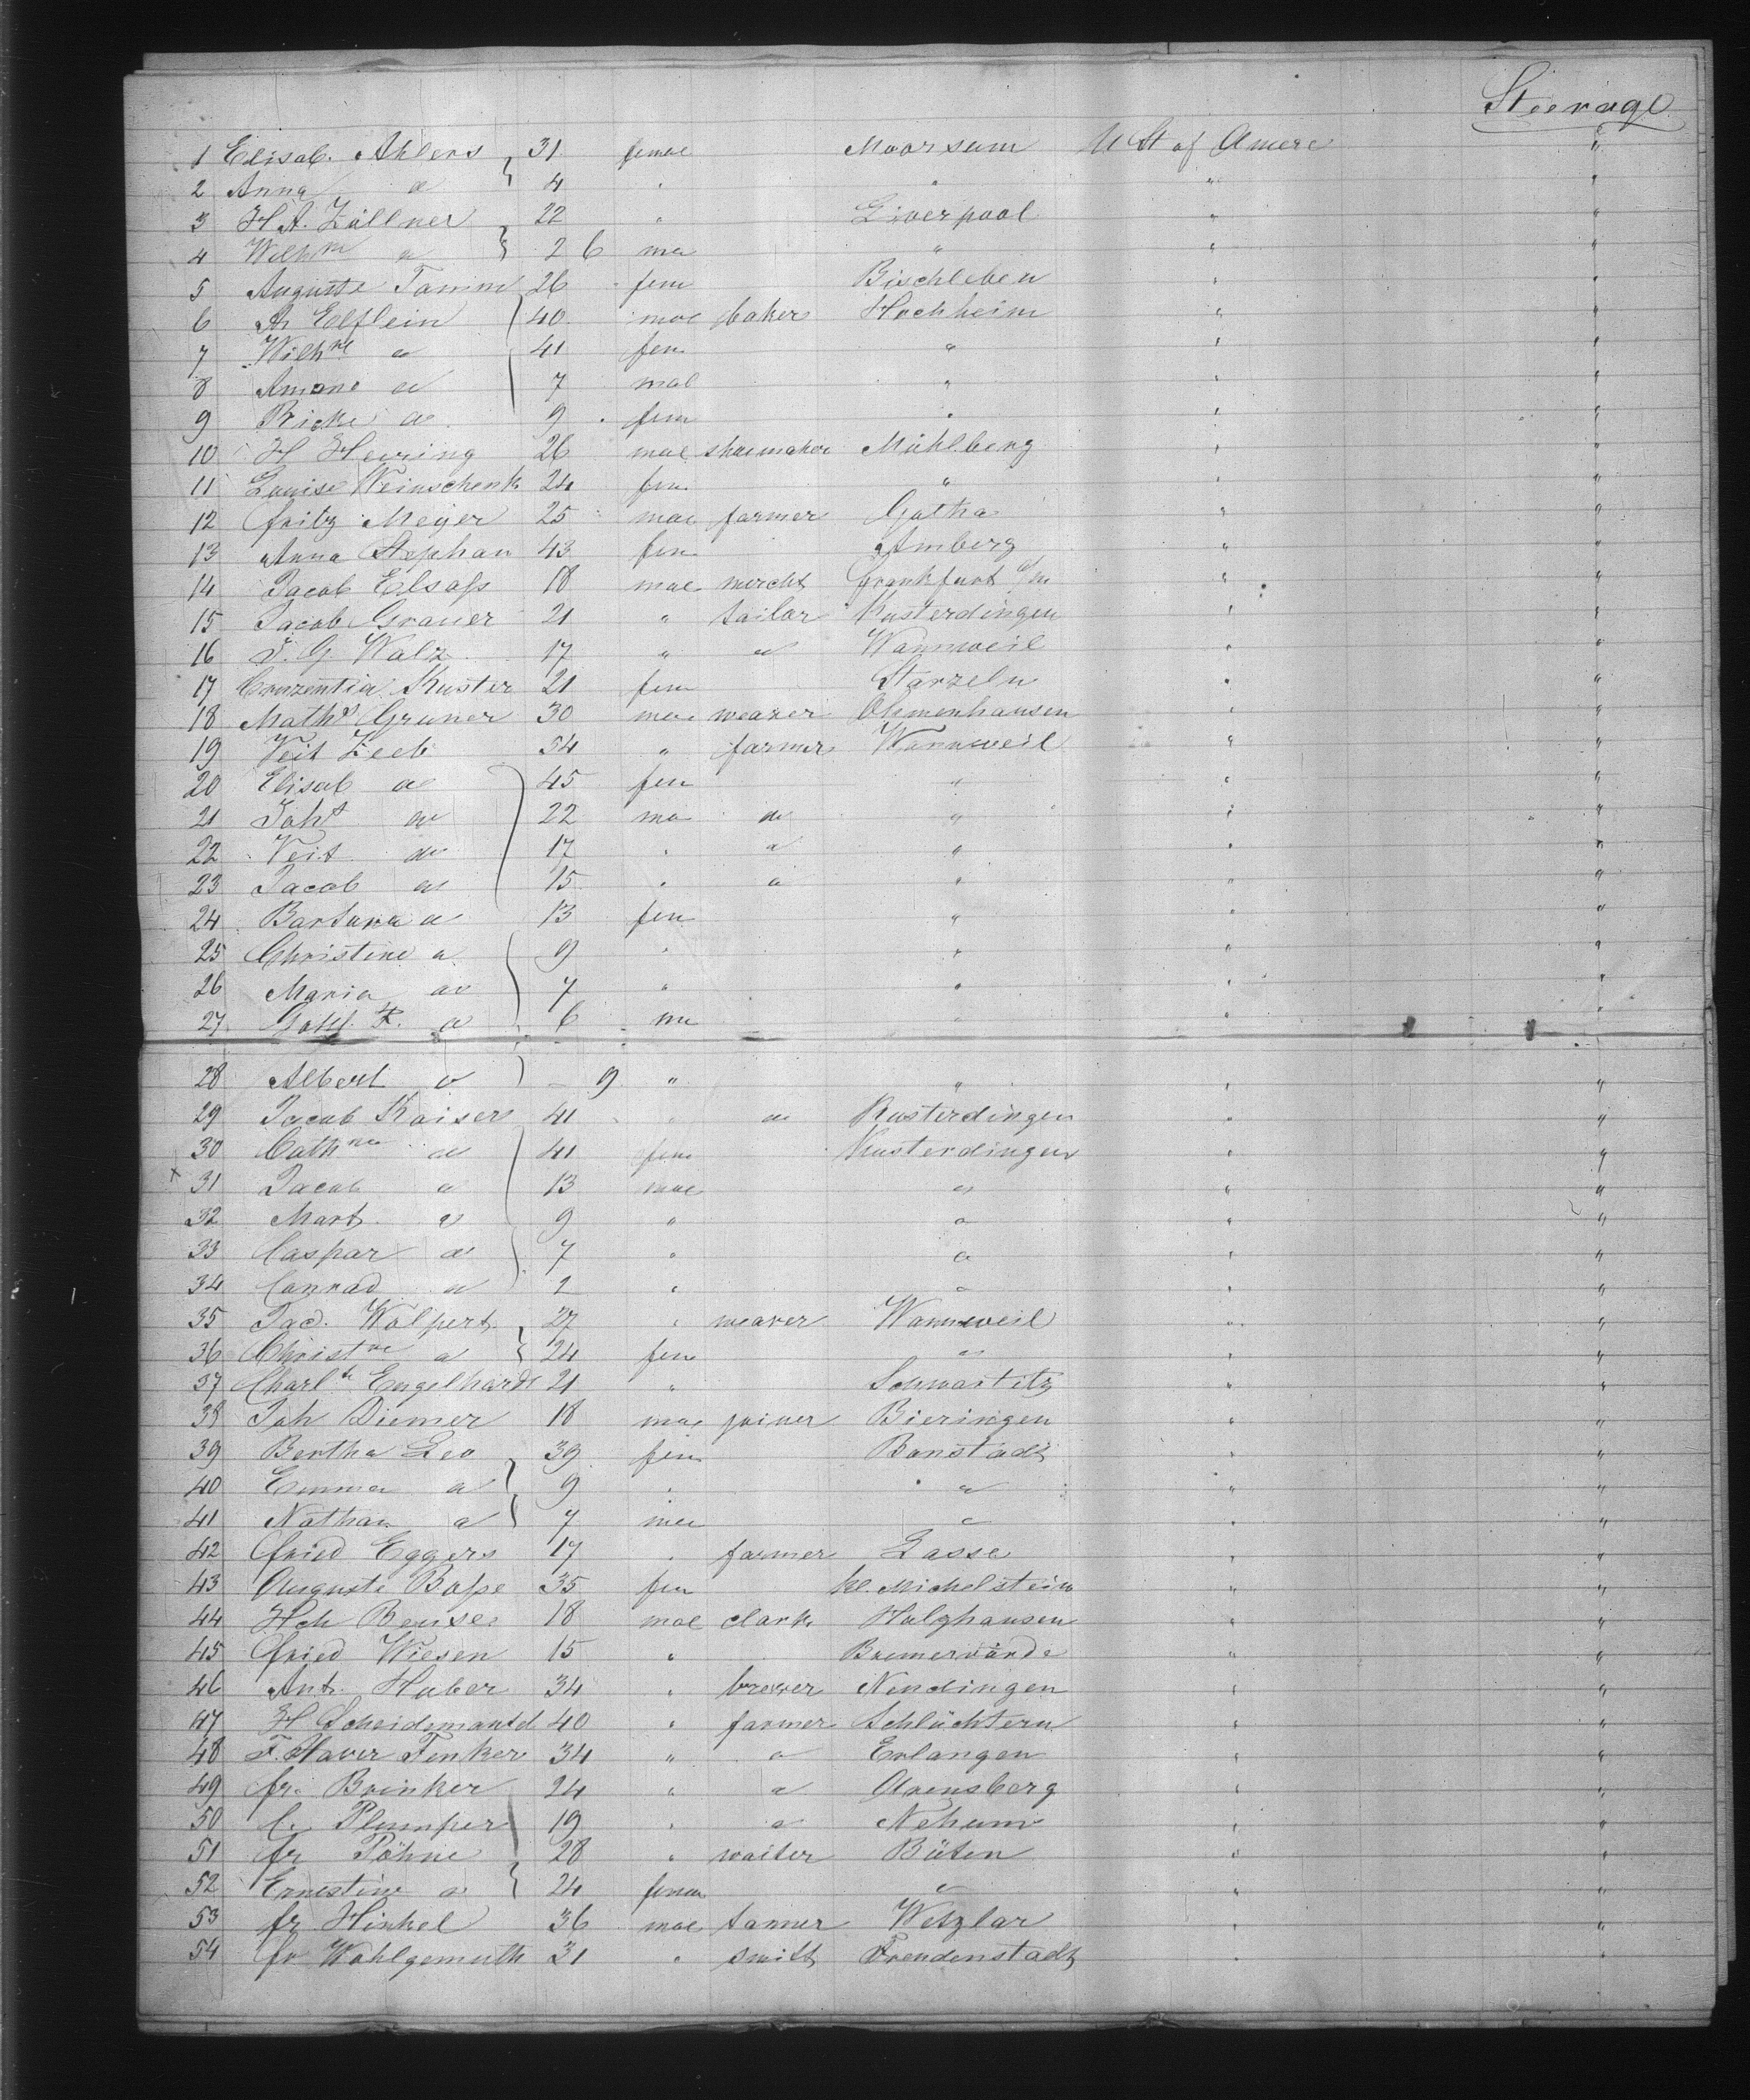 Steerage
1 Elisab. Ahlers 31 femae Moorsum U St of Amere "
2 Anna a 4 " " " "
3 H A. Zöllner 22 " Liverpool " "
4 Wilhm a 2 6 ma " " "
5 Auguste Tamm 26 fem Bischleben " "
6 A. Elflein 40 mae baker Hochheim " "
7 Wilhne a 41 fem " " "
8 Amone a 7 mal " " "
9 Ricke a 9 fem " " "
10 H Hewing 26 mae shoemaker Mühlberg " "
11 Louise Weinschenk 24 fem " " "
12 Fritz Meyer 25 mae farmer Gotha " "
13 Anna Stephan 43 fem Amberg " "
14 Jacob Elsass 18 mae mercht Frankfurt a/m " "
15 Jacob Grauer 21 " tailor Kusterdingen " "
16 J. G. Walz 17 " a Wannweil " "
17 Cruzentia Kuster 21 fem Starzeln " "
18 Maths Gruner 30 mae weaver Ohmenhausen " "
19 Veit Zeeb 54 " farmer Wannweil " "
20 Elisab a 45 fem " " "
21 Johs a 22 ma a " " "
22 Veit a 17 " a " " "
23 Jacob a 15 " a " " "
24 Barbara a 13 fem " " "
25 Christine a 9 " " " "
26 Maria a 7 " " " "
27 Gottl. F. a 6 ma " " "
28 Albert a - 9 " " " "
29 Jacob Kaiser 41 " a Kusterdingen " "
30 Cathna a 41 fem Kusterdingen " "
x 31 Jacob a 13 mae a " "
32 Mart. a 9 " a " "
33 Caspar a 7 " a " "
34 Conrad a 2 " a " "
35 Jacd. Wolpert 27 " weaver Wannweil " "
36 Christne a 24 fem a " "
37 Charlte Engelhardt 21 " Schwastitz " "
38 Joh Diemer 18 mae joiner Bieringen " "
39 Bertha Leo 39 fem Bonstadt " "
40 Emma a 9 " a " "
41 Nathan a 7 ma a " "
42 Fried Eggers 17 " farmer Lasse " "
43 Auguste Basse 35 fem kl. Michelstein " "
44 Hch Reuse 18 mae clark Holzhausen " "
45 Fried Wiesen 15 " Bremervörde " "
46 Ant. Huber 34 " brewer Nendingen " "
47 H Scheidemantel 40 " farmer Schlüchtern " "
48 F. Xaver Fenker 34 " a Erlangen " "
49 Fr. Brinker 24 " a Arensberg " "
50 C. Plumper 19 " a Nehum " "
51 Fr Pöhne 28 " waiter Büten " "
52 Ernestine a 24 femae a " "
53 Fr Hinkel 36 mae tanner Wetzlar " "
54 Fr Wohlgemuth 31 " smith Freudenstadt " "